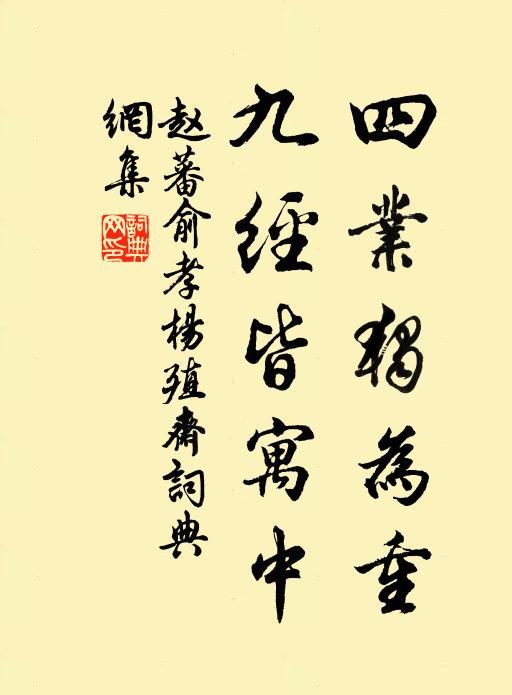 四業獨為重
九經皆寓中
赵蕃俞孝楊殖齋詞典
網集
詞典
网印